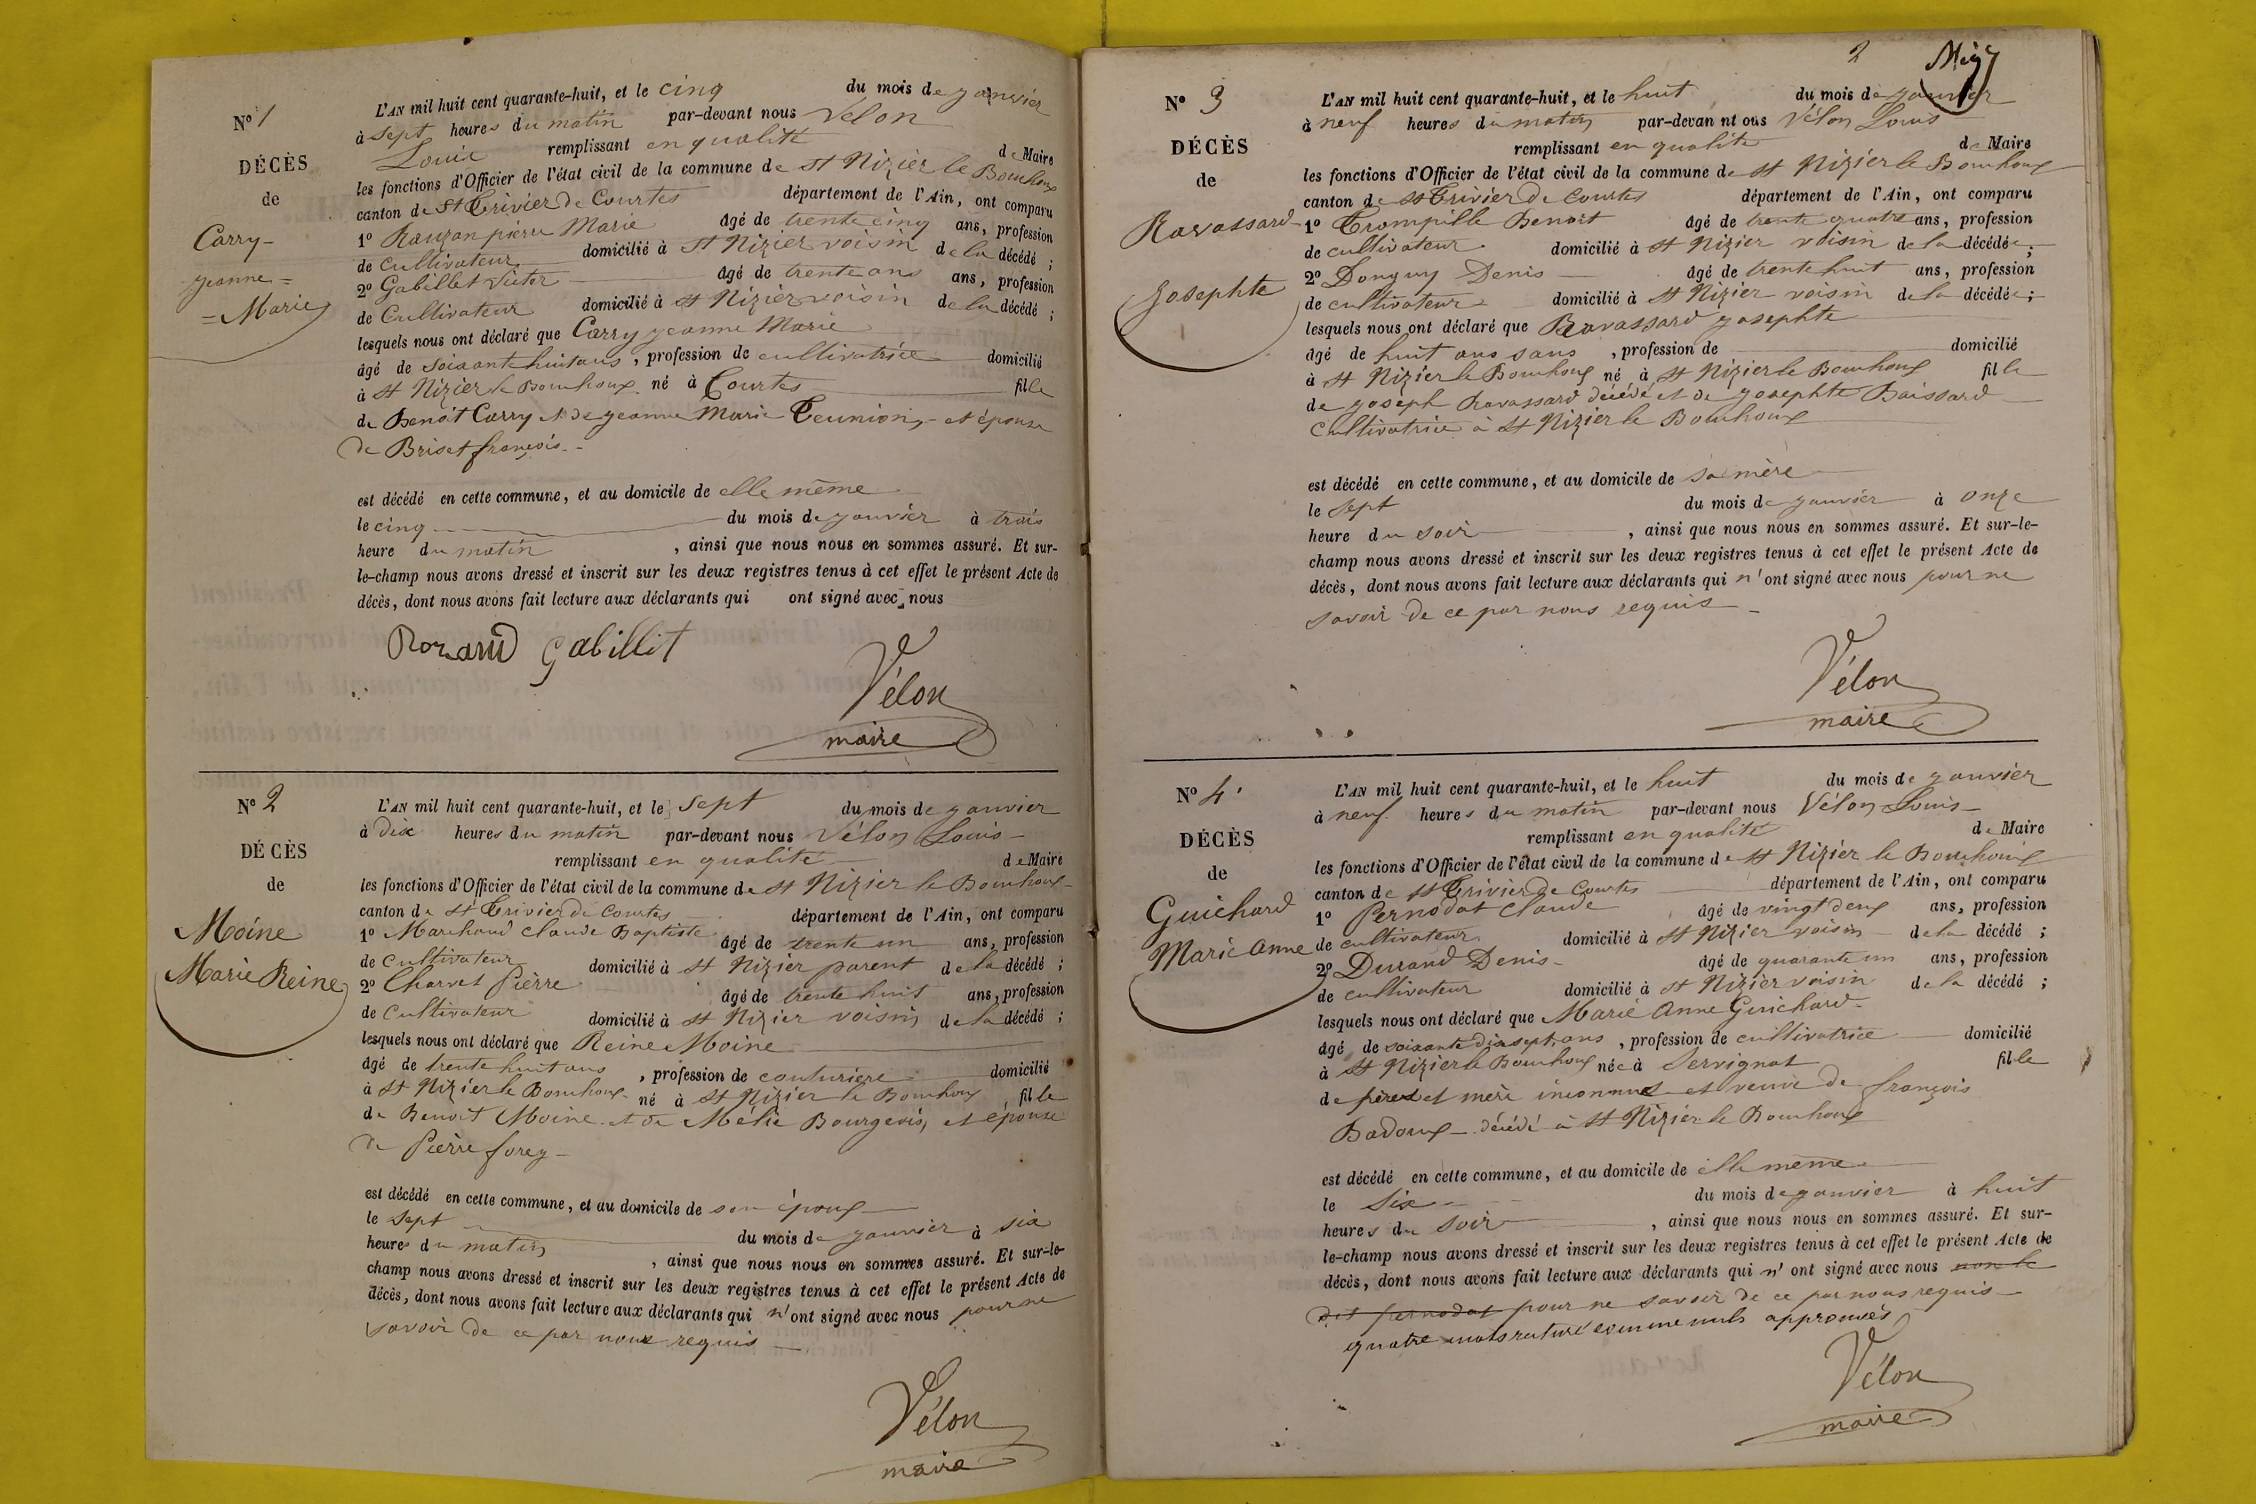 N° 1
DÉCÈS
de
Carry
Jeanne =
= Marie
L'AN mil huit cent quarante-huit, et le cinq du mois de janvier
à sept heures du matin par-devant nous Vélon
Louis remplissant en qualité de Maire
les fonctions d'Officier de l'état civil de la commune de St Nizier le Bouchoux
canton de St Trivier de Courtes département de l'Ain, ont comparu
1° pierre Marie âgé de trente cinq ans, profession
de Cultivateur domicilié à St Nizier voisin de la décédé ;
2° Gabillet Victor âgé de trente ans ans, profession
de Cultivateur domicilié à St Nizier voisin de la décédé ;
lesquels nous ont déclaré que Carry jeanne Marie
âgé de soixant huit ans, profession de cultivatrice domicilié
à St Nizier le Bouchoux né à Courtes fille
de Benoit Carry et de jeanne Marie Teunion, et épouse
de Briset françois
est décédé en cette commune, et au domicile de elle même
le cinq du mois de janvier à trois
heure du matin, ainsi que nous nous en sommes assuré. Et sur-
le-champ nous avons dressé et inscrit sur les deux registres tenus à cet effet le présent Acte de
décès, dont nous avons fait lecture aux déclarants qui ont signé avec nous
Gabillit
Vélon
maire
N° 2
DÉCÈS
de
Moine
Marie Reine
L'AN mil huit cent quarante-huit, et le sept du mois de janvier
à dix heures du matin par-devant nous Vélon Louis
remplissant en qualité de Maire
les fonctions d'Officier de l'état civil de la commune de St Nizier le Bouchoux
canton de St Trivier de Courtes département de l'Ain, ont comparu
1° Marchand Claude Baptiste âgé de trente un ans, profession
de cultivateur domicilié à St Nizier parent de la décédé ;
2° Charvet Pierre âgé de trente huit ans, profession
de Cultivateur domicilié à St Nizier voisin de la décédé ;
lesquels nous ont déclaré que Reine Moine
âgé de trente huit ans, profession de couturière domicilié
à St Nizier le Bouchoux né à St Nizier le Bouchoux fille
de Benoit Moine et de Mélie Bourgeois, et épouse
de Pierre forey
est décédé en cette commune, et au domicile de son époux
le sept du mois de janvier à six
heures du matin, ainsi que nous nous en sommes assuré. Et sur-le-
champ nous avons dressé et inscrit sur les deux registres tenus à cet effet le présent Acte de
décès, dont nous avons fait lecture aux déclarants qui n'ont signé avec nous pour ne
savoir de ce par nous requis
Vélon
maire
2
N° 3
DÉCÈS
de
Ravassard
Josephte
L'AN mil huit cent quarante-huit, et le huit du mois de janvier
à neuf heures du matin par-devan nt ous Vélon Louis
remplissant en qualité de Maire
les fonctions d'Officier de l'état civil de la commune de St Nizier le Bouchoux
canton de St Trivier de Courtes département de l'Ain, ont comparu
1° Trompille Benoit âgé de trente quatre ans, profession
de cultivateur domicilié à St Nizier voisin de la décédée ;
2° Donguy Denis âgé de trente huit ans, profession
de cultivateur domicilié à St Nizier voisin de la décédée ;
lesquels nous ont déclaré que Ravassard josephte
âgé de huit ans sans, profession de domicilié
à St Nizier le Bouchoux né à St Nizier le Bouchoux fille
de joseph Ravassard décédé et de josephte Boissard
Cultivatrice à St Nizier le Bouchoux
est décédé en cette commune, et au domicile de sa mère
le sept du mois de janvier à onze
heure du soir, ainsi que nous nous en sommes assuré. Et sur-le-
champ nous avons dressé et inscrit sur les deux registres tenus à cet effet le présent Acte de
décès, dont nous avons fait lecture aux déclarants qui n'ont signé avec nous pour ne
savoir de ce par nous requis
Vélon
maire
N° 4
DÉCÈS
de
Guichard
Marie Anne
L'AN mil huit cent quarante-huit, et le huit du mois de janvier
à neuf heures du matin par-devant nous Vélon Louis
remplissant en qualité de Maire
les fonctions d'Officier de l'état civil de la commune de St Nizier le Bouchoux
canton de St Trivier de Courtes département de l'Ain, ont comparu
1° Pernodat Claude âgé de vingt deux ans, profession
de cultivateur domicilié à St Nizier voisin de la décédé ;
2° Durand Denis âgé de quarante un ans, profession
de cultivateur domicilié à St Nizier voisin de la décédé ;
lesquels nous ont déclaré que Marie Anne Guichard
âgé de soixante dix sept ans, profession de cultivatrice domicilié
à St Nizier le Bouchoux née à Servignat fille
de père et mère inconnus et veuve de françois
Badoux décédé à St Nizier le Bouchoux
est décédé en cette commune, et au domicile de elle même
le six du mois de janvier à huit
heures du soir, ainsi que nous nous en sommes assuré. Et sur-
le-champ nous avons dressé et inscrit sur les deux registres tenus à cet effet le présent Acte de
décès, dont nous avons fait lecture aux déclarants qui n'ont signé avec nous non le
dit pernodat pour ne savoir de ce par nous requis
quatre mots raturé comme nuls approuvés
Vélon
maire